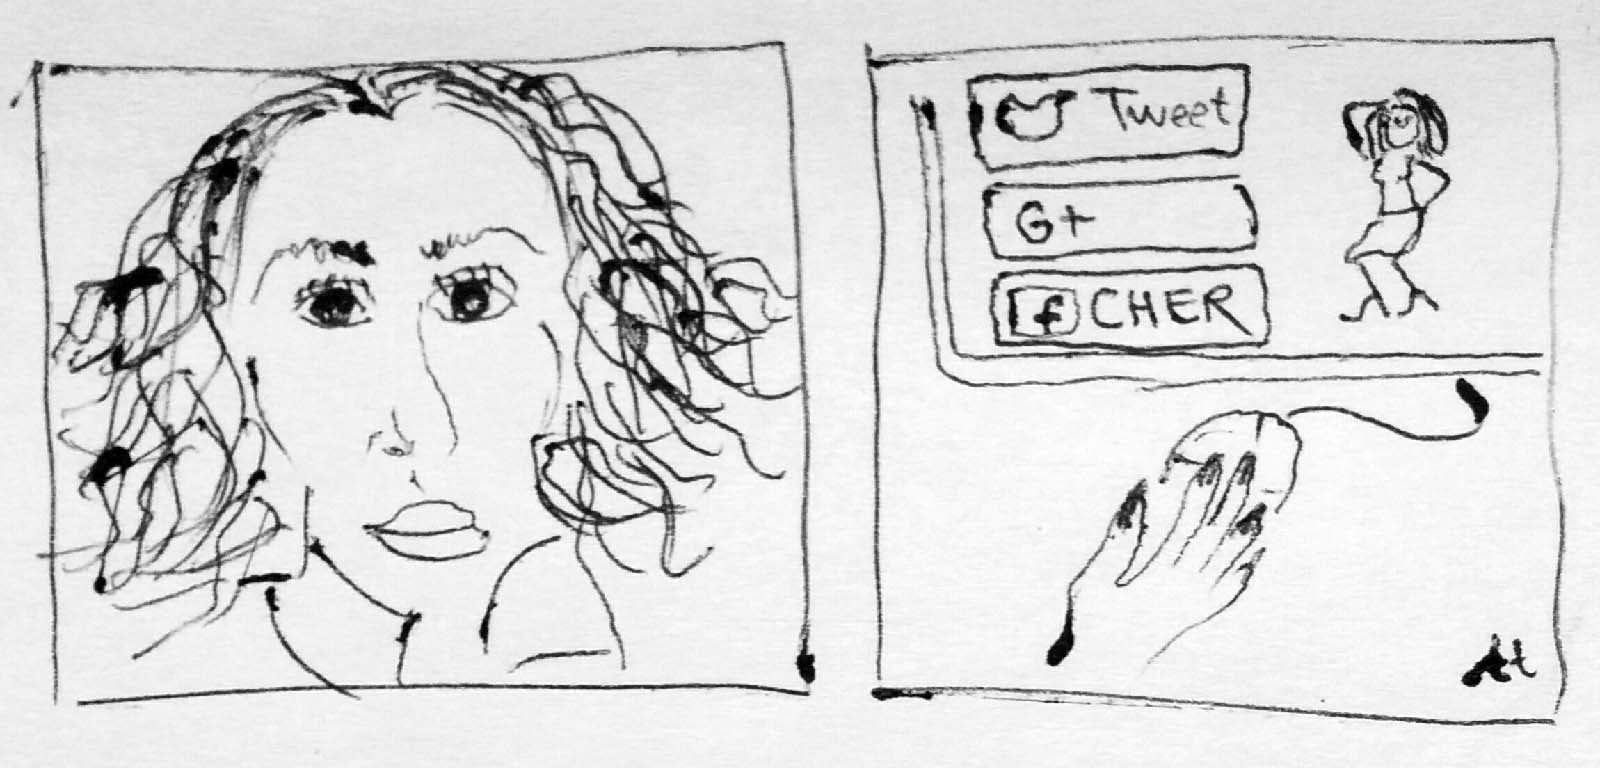 Tweet
G+
f CHER
At